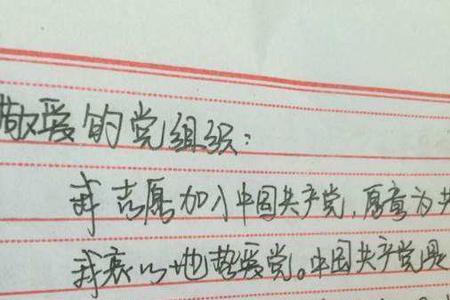 敬爱的党组织：
我志愿加入中国共产党，愿意为共
我衷心地热爱党。中国共产党是